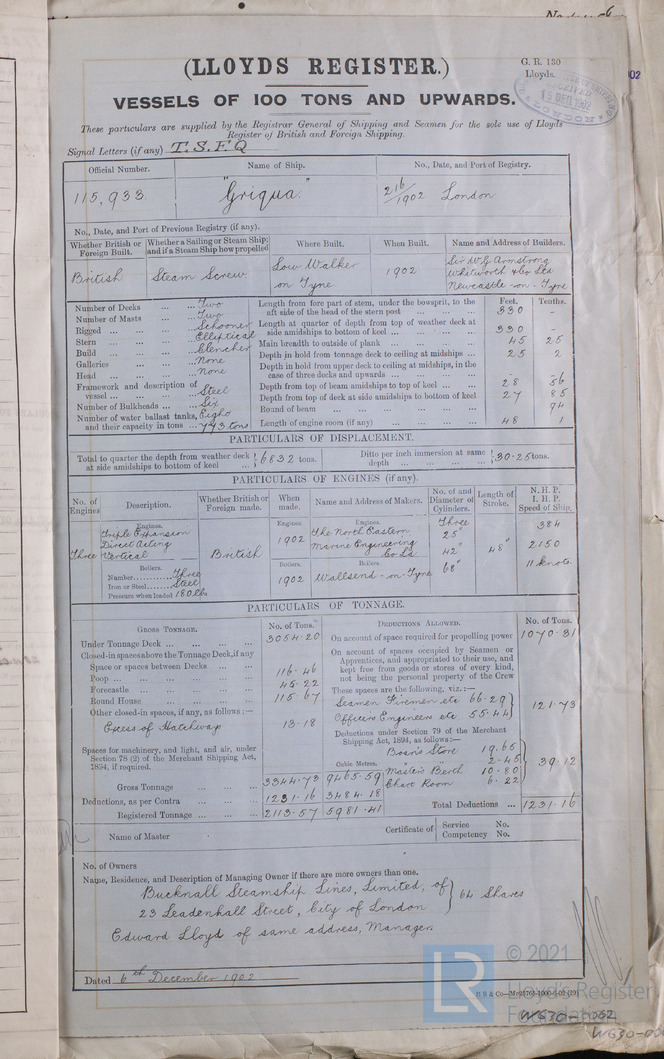 (LLOYDS REGISTER.)
G. R. 130
Lloyds.
VESSELS OF 100 TONS AND UPWARDS.
15 DEC 1902
These particulars are supplied by the Registrar General of Shipping and Seamen for the sole use of Lloyds
Register of British and Foreign Shipping.
Signal Letters (if any) T.S.F.Q
Official Number. Name of Ship. No., Date, and Port of Registry.
115,933 "Griqua." 216/1902 London
No., Date, and Port of Previous Registry (if any).
Whether British or Foreign Built. Whether a Sailing or Steam Ship; and if a Steam Ship how propelled Where Built. When Built. Name and Address of Builders.
British Steam Screw Low Walker on Tyne 1902 Sir W.G Armstrong Whitworth & Co Ltd Newcastle-on-Tyne
Number of Decks ... ... Two
Number of Masts ... ... Two
Rigged ... ... ... Schooner
Stern ... ... ... Elliptical
Build ... ... ... Clencher
Galleries ... ... None
Head ... ... ... None
Framework and description of vessel ... ... ... Steel
Number of Bulkheads ... ... Six
Number of water ballast tanks, Eight
and their capacity in tons ... 793 tons
Feet. Tenths.
Length from fore part of stem, under the bowsprit, to the aft side of the head of the stern post ... 330 -
Length at quarter of depth from top of weather deck at side amidships to bottom of keel ... 330 -
Main breadth to outside of plank ... 45 25
Depth in hold from tonnage deck to ceiling at midships ... 25 2
Depth in hold from upper deck to ceiling at midships, in the case of three decks and upwards ... -
Depth from top of beam amidships to top of keel ... 28 56
Depth from top of deck at side amidships to bottom of keel 27 85
Round of beam ... 94
Length of engine room (if any) ... 48 1
PARTICULARS OF DISPLACEMENT.
Total to quarter the depth from weather deck at side amidships to bottom of keel ... 6832 tons. Ditto per inch immersion at same depth ... 30.25 tons.
PARTICULARS OF ENGINES (if any).
No. of Engines Description. Whether British or Foreign made. When made. Name and Address of Makers. No. of and Diameter of Cylinders. Length of Stroke. N. H. P. I. H. P. Speed of Ship.
Engines. Engines. Engines.
Three Triple Expansion Direct Acting Vertical British 1902 The North Eastern Marine Engineering Co Ld Three 25" 42" 68" 48" 384 2150 11 knots
Boilers. Boilers. Boilers.
Number.......... Three
Iron or Steel....... Steel
Pressure when loaded 180 lbs
1902 Wallsend-on-Tyne
PARTICULARS OF TONNAGE.
GROSS TONNAGE. No. of Tons.
Under Tonnage Deck ... 3054.20
Closed-in spaces above the Tonnage Deck, if any
Space or spaces between Decks ...
Poop ... 116.46
Forecastle ... 45.22
Round House ... 115.67
Other closed-in spaces, if any, as follows:—
Excess of Hatchways 13.18
Spaces for machinery, and light, and air, under Section 78 (2) of the Merchant Shipping Act, 1894, if required.
Cubic Metres.
Gross Tonnage ... 3344.73 9465.59
Deductions, as per Contra ... 1231.16 3484.18
Registered Tonnage ... 2113.57 5981.41
DEDUCTIONS ALLOWED. No. of Tons.
On account of space required for propelling power 1070.31
On account of spaces occupied by Seamen or Apprentices, and appropriated to their use, and kept free from goods or stores of every kind, not being the personal property of the Crew
These spaces are the following, viz.:—
Seamen Firemen etc 66.29
Officers Engineers etc 55.44
121.73
Deductions under Section 79 of the Merchant Shipping Act, 1894, as follows:—
Bosn's Store 19.65
" " 2.45
Master's Berth 10.80
Chart Room 6.22
39.12
Total Deductions ... 1231.16
Name of Master
Certificate of Service No.
Competency No.
No. of Owners
Name, Residence, and Description of Managing Owner if there are more owners than one.
Bucknall Steamship Lines, Limited, of
23 Leadenhall Street, City of London } 64 Shares
Edward Lloyd of same address, Manager.
Dated 6th December 1902
© 2021
LR Lloyd's Register
Foundation
W630-0062